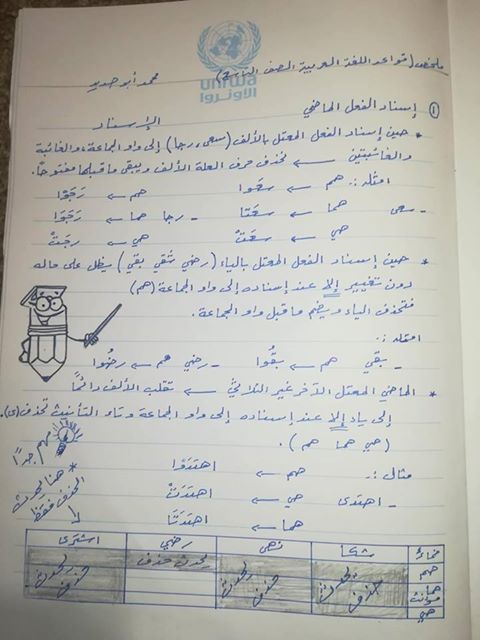 ملخص (قواعد اللغة العربية الصف الثامن)
محمد أبو صديد
unrwa
الأونروا
① إسناد الفعل الماضي
الإسناد
* حين إسناد الفعل المعتل بالألف (سعى، رجا) إلى واو الجماعة، والغائبة
والغائبتين ← نحذف حرف العلة الألف ويبقى ما قبلها مفتوحاً.
امثلة :. هم ← سعَوا هم ← رَجَوْا
- سعى هما ← سعَتا - رجا هما ← رَجَتا
هي ← سعَتْ هي ← رجَتْ
* حين إسناد الفعل المعتل بالياء (رضي شقي بقي) يظل على حاله
دون تغيير إلا عند إسناده إلى واو الجماعة (هم)
فتحذف الياء ويضم ما قبل واو الجماعة.
امثلة :.
- بقي هم ← بقُوا - رضي هم ← رضُوا
* الماضي المعتل الآخر غير الثلاثي ← تقلب الألف دائماً
إلى ياء إلا عند إسناده إلى واو الجماعة وتاء التأنيث تحذف (ى).
(هي هما هم).
مهم جداً
مثال :. هم ← اهتدَوْا
- اهتدى هي ← اهتدَتْ
هما ← اهتدَتَا
* هنا يحدث
الحذف فقط
ضمائر شكا نهى رضي اشترى
هم يحدث حذف
هما مؤنث يحدث حذف يحدث حذف يحدث حذف
هي